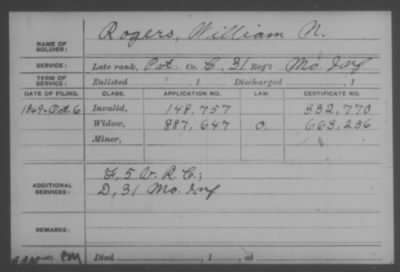 NAME OF SOLDIER: Rogers, William N.
SERVICE: Late rank, Pvt. Co. C, 31 Reg't Mo. Inf
TERM OF SERVICE: Enlisted , 1 Discharged , 1
DATE OF FILING. CLASS. APPLICATION NO. LAW. CERTIFICATE NO.
1869-Oct. 6 Invalid, 148,757 332,770
Widow, 887,647 O. 663,236
Minor,
ADDITIONAL SERVICES: F, 5 V. R. C.;
D, 31 Mo. Inf
REMARKS:
Died , 1 , at